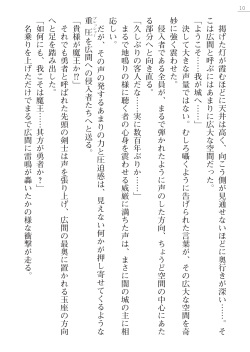 10
掲げた灯が霞むほどに天井は高く、向こう側が見通せないほどに奥行きが深い……そ
こは広間と呼ぶにはあまりにも広大な空間だった。
「ようこそ……我が城へ……」
決して大きな声量ではない。むしろ囁くように告げられた言葉が、その広大な空間を高
妙に強く震わせた。
侵入者である全員が、まるで弾かれたように声のした方向、ちょうど空間の中心にあた
る部分へと向き直る。
「久しぶりの客人だな……実に数百年ぶりか……」
まるで地鳴りの様に聴く者の心身を震わせる威厳に満ちた声は、まさに闇の城の主に相
応しい。
だが、その声の発するあまりの力と圧迫感は、見えない何かが押し寄せてくるような
重圧を広間への侵入者たちへと送る。
「貴様が魔王か!?」
それでも勇者と呼ばれた先頭の剣士は声を張り上げ、広間の最奥に置かれる玉座の方向
へと足を踏み出した。
「如何にも、我こそは魔王……其方が勇者か?」
名乗りを上げただけでまるで広間に雷鳴が轟いたかの様な衝撃が走る。